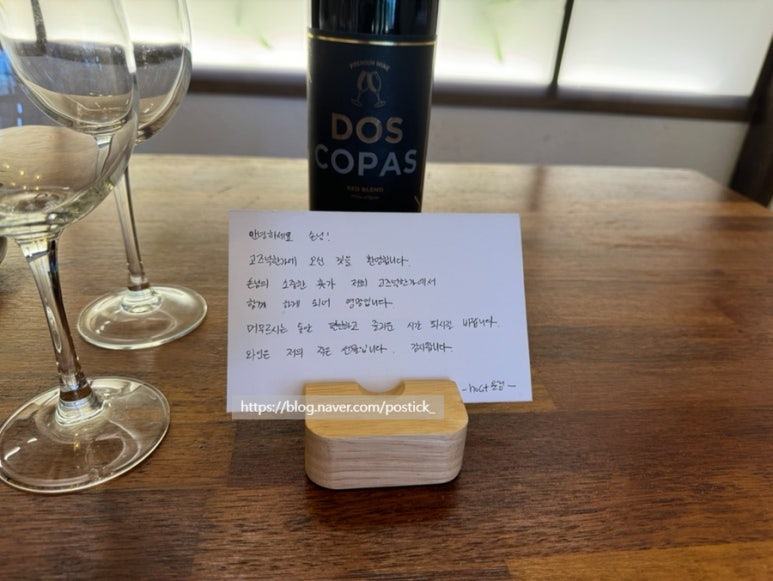 PREMIUM WINE
DOS
COPAS
RED BLEND
안녕하세요 손님!
고즈넉한가에 오신 것을 환영합니다.
손님의 소중한 휴가 저희 고즈넉한가에서
함께 하게 되어 영광입니다.
머무르시는 동안 편안하고 즐거운 시간 되시길 바랍니다.
와인은 저의 작은 선물입니다. 감사합니다.
-host
https://blog.naver.com/postick_